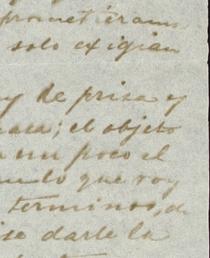 prometieramos
solo exigian
y de prisa y
casa; el objeto
un poco el
que voy
terminos, de
darle la